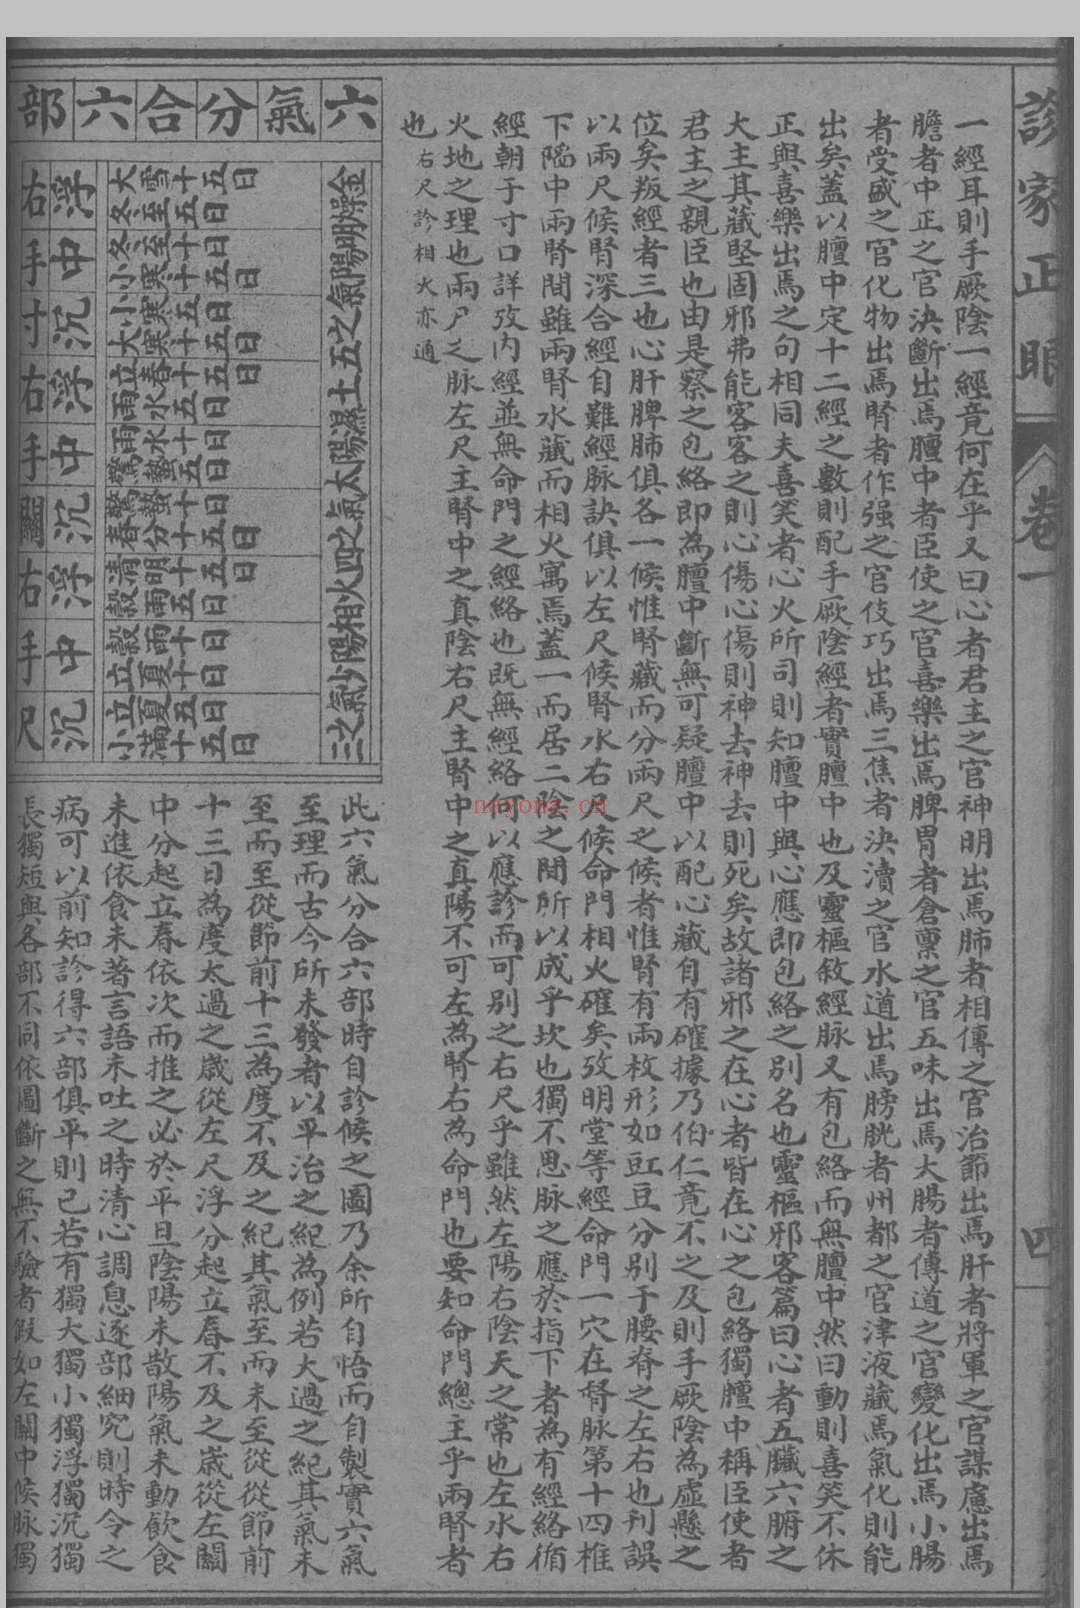 診家正眼
卷一
四
一經耳則手厥陰一經竟何在乎又曰心者君主之官神明出焉肺者相傳之官治節出焉肝者將軍之官謀慮出焉
膽者中正之官決斷出焉膻中者臣使之官喜樂出焉脾胃者倉稟之官五味出焉大腸者傳道之官變化出焉小腸
者受盛之官化物出焉腎者作强之官伎巧出焉三焦者決瀆之官水道出焉膀胱者州都之官津液藏焉氣化則能
出矣蓋以膻中定十二經之數則配手厥陰經者實膻中也及靈樞敘經脉又有包絡而無膻中然曰動則喜笑不休
正與喜樂出焉之句相同夫喜笑者心火所司則知膻中與心應即包絡之別名也靈樞邪客篇曰心者五臟六腑之
大主其藏堅固邪弗能客客之則心傷心傷則神去神去則死矣故諸邪之在心者皆在心之包絡獨膻中稱臣使者
君主之親臣也由是察之包絡即為膻中斷無可疑膻中以配心藏自有確據乃伯仁竟不之及則手厥陰為虛懸之
位矣叛經者三也心肝脾肺俱各一候惟腎藏而分兩尺之候者惟腎有兩枚形如豇豆分別于腰脊之左右也刋誤
以兩尺候腎深合經自難經脉訣俱以左尺候腎水右尺候命門相火確矣攷明堂等經命門一穴在督脉第十四椎
下陷中兩腎間雖兩腎水藏而相火寓焉蓋一而居二陰之間所以成乎坎也獨不思脉之應於指下者為有經絡循
經朝于寸口詳攷內經並無命門之經絡也既無經絡何以應診而可別之右尺乎雖然左陽右陰天之常也左水右
火地之理也兩尸之脉左尺主腎中之真陰右尺主腎中之真陽不可左為腎右為命門也要知命門總主乎兩腎者
也右尺診相火亦通
六氣分合六部
金燥明陽氣之五土濕陽太氣之四火相陽少氣之三
大雪十五日冬至五日
冬至十日小寒十五日
小寒五日大寒十五日
立春十五日雨水五日
雨水十日驚蟄十五日
驚蟄十日春分十五日
清明十五日穀雨五日
穀雨十日立夏十日
立夏五日小滿十五日
浮中沉浮中沉浮中沉
右手寸右手關右手尺
此六氣分合六部時自診候之圖乃余所自悟而自製實六氣
至理而古今所未發者以平治之紀為例若大過之紀其氣未
至而至從節前十三為度不及之紀其氣至而未至從從節前
十三日為度太過之歲從左尺浮分起立春不及之歲從左關
中分起立春依次而推之必於平旦陰陽未散陽氣未動飲食
未進依食未著言語未吐之時清心調息逐部細究則時令之
病可以前知診得六部俱平則已若有獨大獨小獨浮獨沉獨
長獨短與各部不同依圖斷之無不驗者假如左關中候脉獨